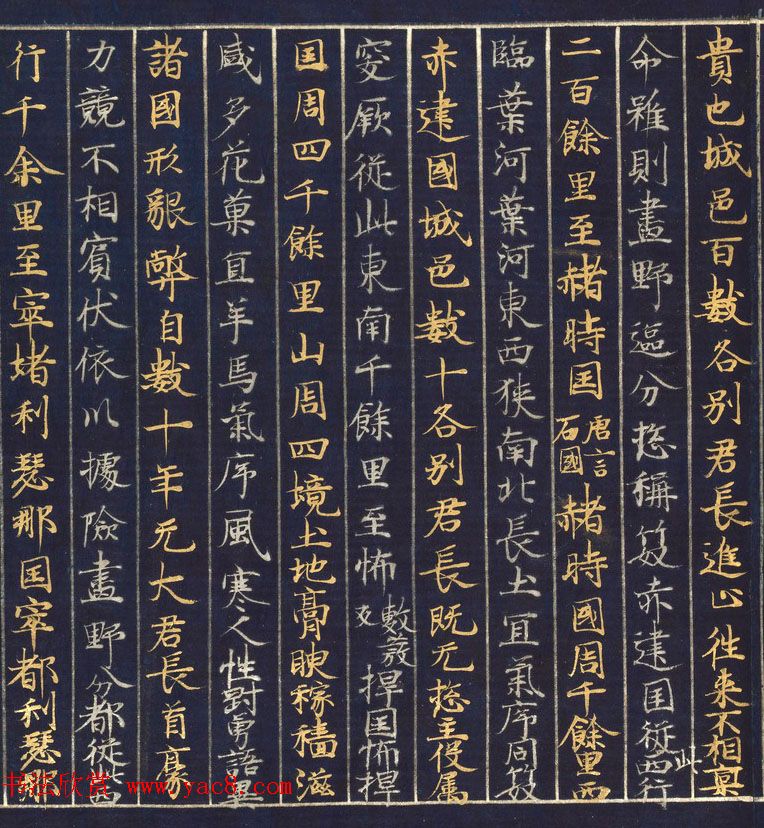 貴也城邑百數各別君長進止往来不相禀
命雖則畫野區分揔稱笯赤建国従此西行
二百餘里至赭時国唐言石國赭時國周千餘里西
臨葉河葉河東西狭南北長土冝氣序同笯
赤建國城邑數十各別君長既无揔主役属
突厥従此東南千餘里至怖敷發反捍国怖捍
国周四千餘里山周四境土地膏腴稼穡滋
盛多花菓宜羊馬氣序風寒人性對勇語異
諸國形貌弊自數十年无大君長首豪
力競不相賓伏依川據險畫野分都従此西
行千余里至窣堵利瑟那国窣都利瑟那
书法欣赏 www.yac8.com